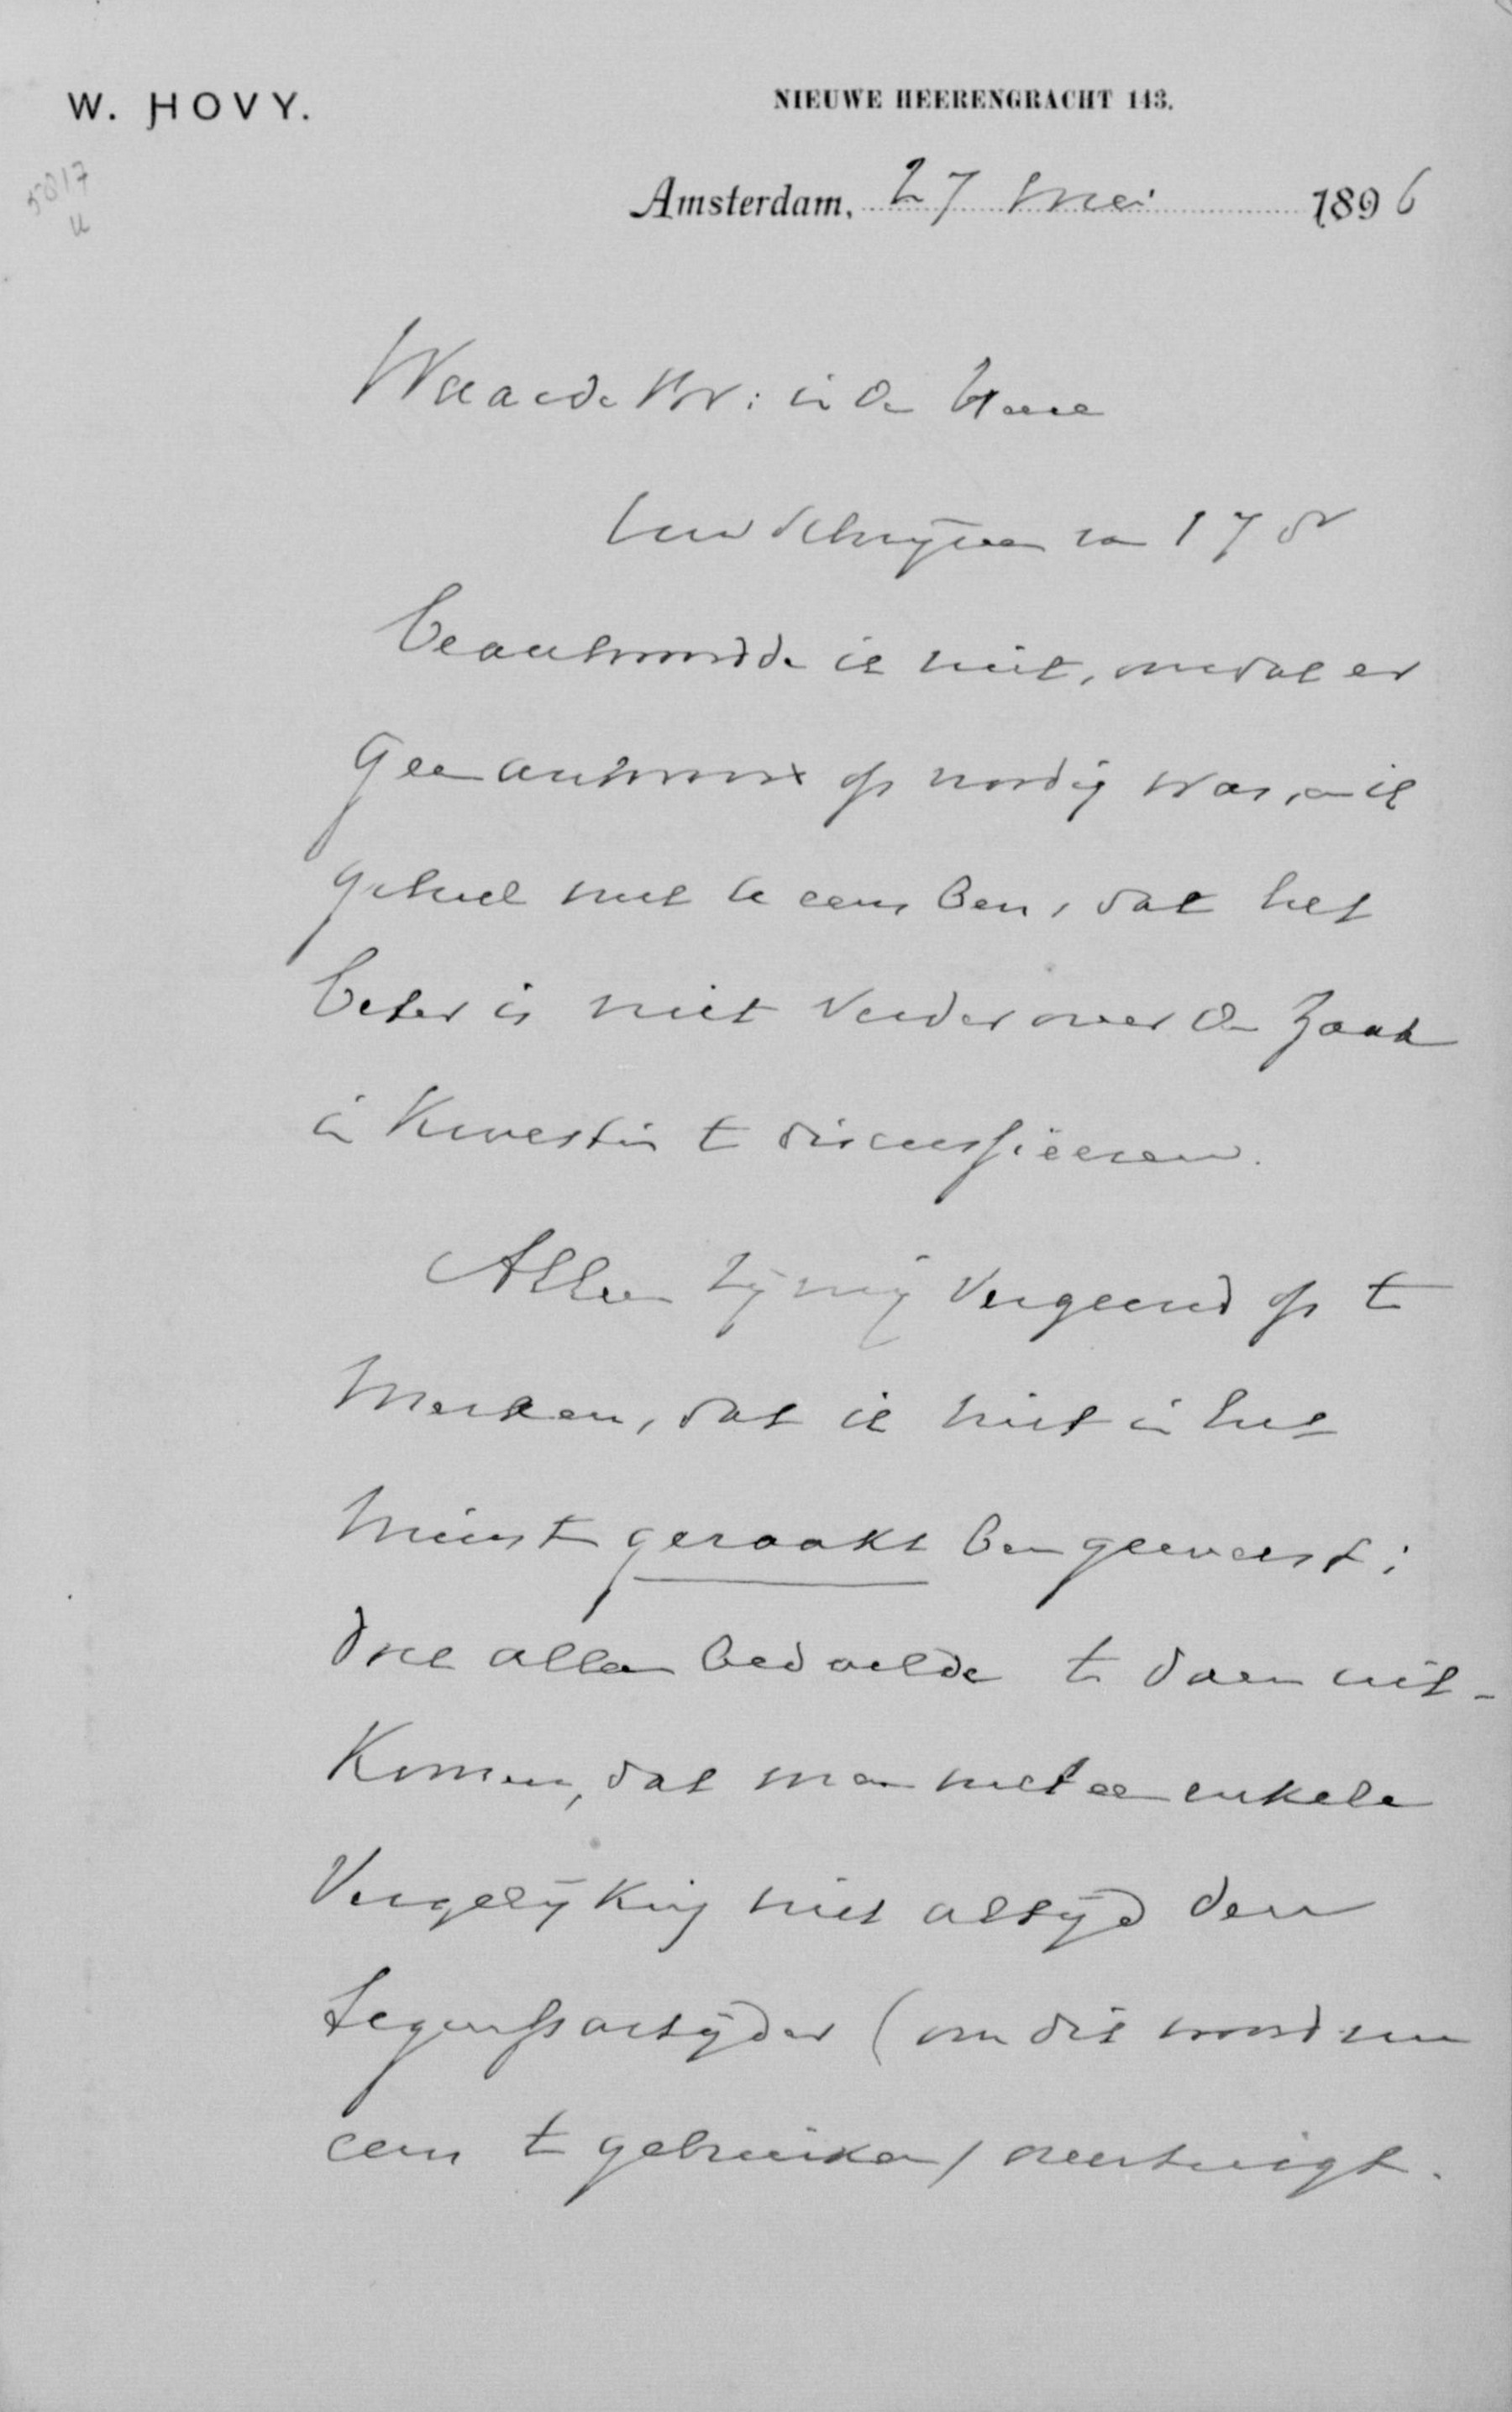 W. HOVY.
NIEUWE HEERENGRACHT 143.
5817
Amsterdam, 27 Mei 1896
Waarde Br: in den Heere
Uw schrijven van 17 dr
beantwoordde ik niet, omdat er
geen antwoord op noodig was, en ik
geheel met U eens ben, dat het
beter is niet verder over de zaak
in kwestie te discussieeren.
Alleen zij mij vergund op te
merken, dat ik niet in het
minst geraakt ben geweest;
doch alleen bedoelde te doen uit-
komen, dat men met een enkele
vergelijking niet altijd den
tegenpartijder (om dit woord nu
eens te gebruiken) overtuigt.